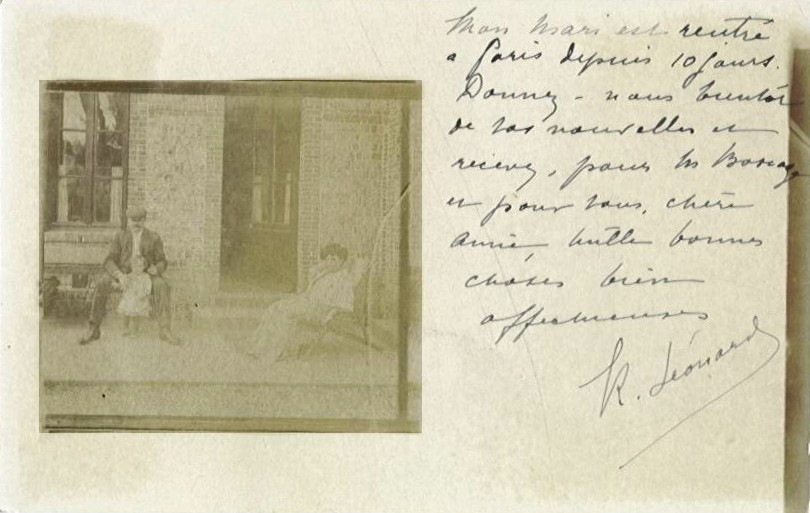 Mon mari est rentré
a Paris depuis 10 jours.
Donnez-nous bientôt
de vos nouvelles et
recevez, pour les
et pour vous, chère
amie, mille bonnes
choses bien
affectueuses
K. Léonard